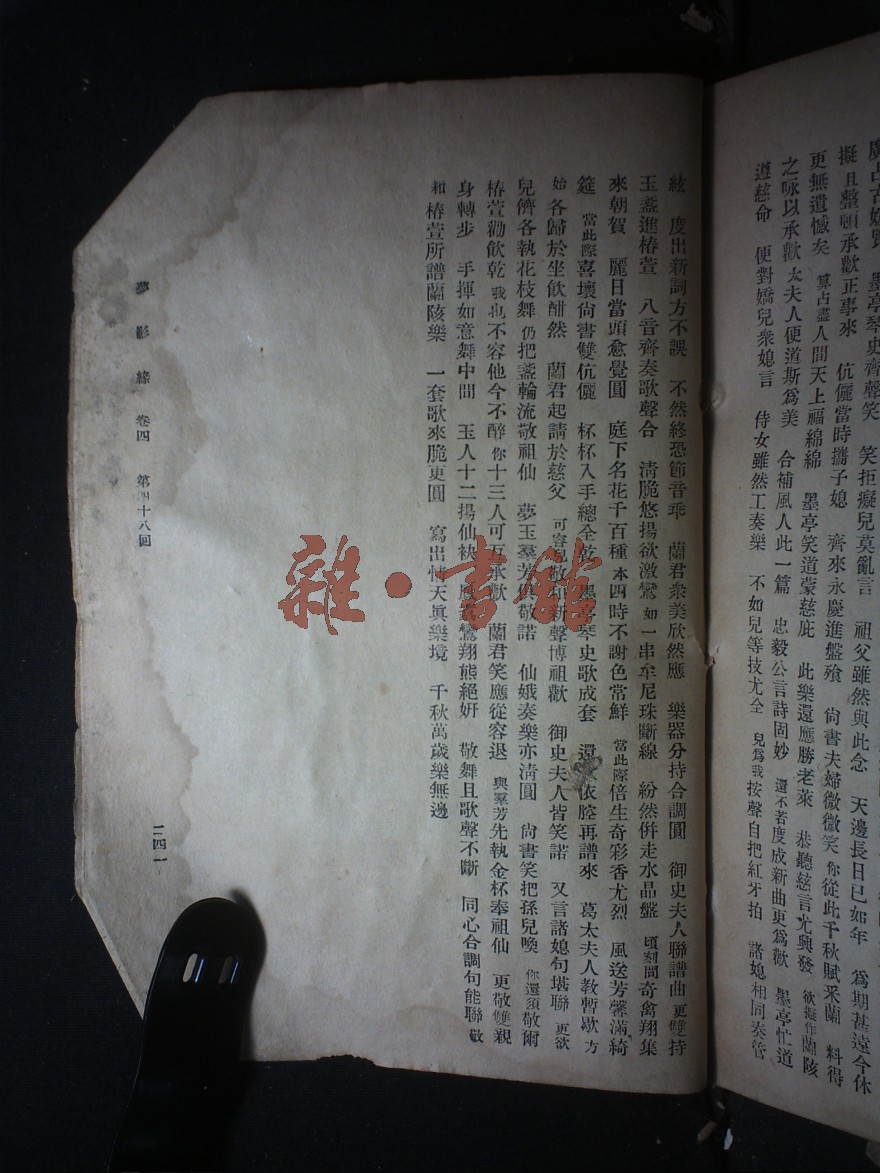 廣占古
擬且整頓承歡正事來　伉儷當時攜子媳　齊來永慶進盤飱　尙書夫婦微微笑　你從此千秋賦采蘭　料得
更無遺憾矣　算占盡人間天上福綿綿　墨亭笑道蒙慈庇　此樂還應勝老萊　恭聽慈言尤興發　欲擬作蘭陔
之咏以承歡　太夫人便道斯爲美　合補風人此一篇　忠毅公言詩固妙　還不若度成新曲更爲歡　墨亭忙道
遵慈命　便對嬌兒衆媳言　侍女雖然工奏樂　不如兒等技尤全　兒爲我按聲自把紅牙拍　諸媳相同奏管
絃　度出新詞方不誤　不然終恐節音乖　蘭君衆美欣然應　樂器分持合調圓　御史夫人聯譜曲　更雙持
玉盞進椿萱　八音齊奏歌聲合　淸脆悠揚欲激鸞　如一串牟尼珠斷線　紛然併走水晶盤　頃刻間奇禽翔集
來朝賀　麗日當頭愈覺圓　庭下名花千百種　本四時不謝色常鮮　當此際倍生奇彩香尤烈　風送芳馨滿綺
筵　當此際喜壞尙書雙伉儷　杯杯入手總全乾　墨亭琴史歌成套　還依腔再譜來　葛太夫人敎暫歇　方
始各歸於坐飮酣然　蘭君起請於慈父　可容兒敬和新聲博祖歡　御史夫人皆笑諾　又言諸媳句堪聯　更欲
兒儕各執花枝舞　仍把盞輪流敬祖仙　夢玉羣芳俱敬諾　仙娥奏樂亦淸圓　尙書笑把孫兒喚　你還須敬爾
椿萱勸飮乾　我也不容他今不醉　你十三人可互承歡　蘭君笑應從容退　與羣芳先執金杯奉祖仙　更敬雙親
身轉步　手揮如意舞中間　玉人十二揚仙袂　鳳翥鸞翔態絕妍　敬舞且歌聲不斷　同心合調句能聯　敬
和椿萱所譜蘭陔樂　一套歌來脆更圓　寫出情天眞樂境　千秋萬歲樂無邊
夢影緣　卷四　第四十八回
二四一
雜·書館